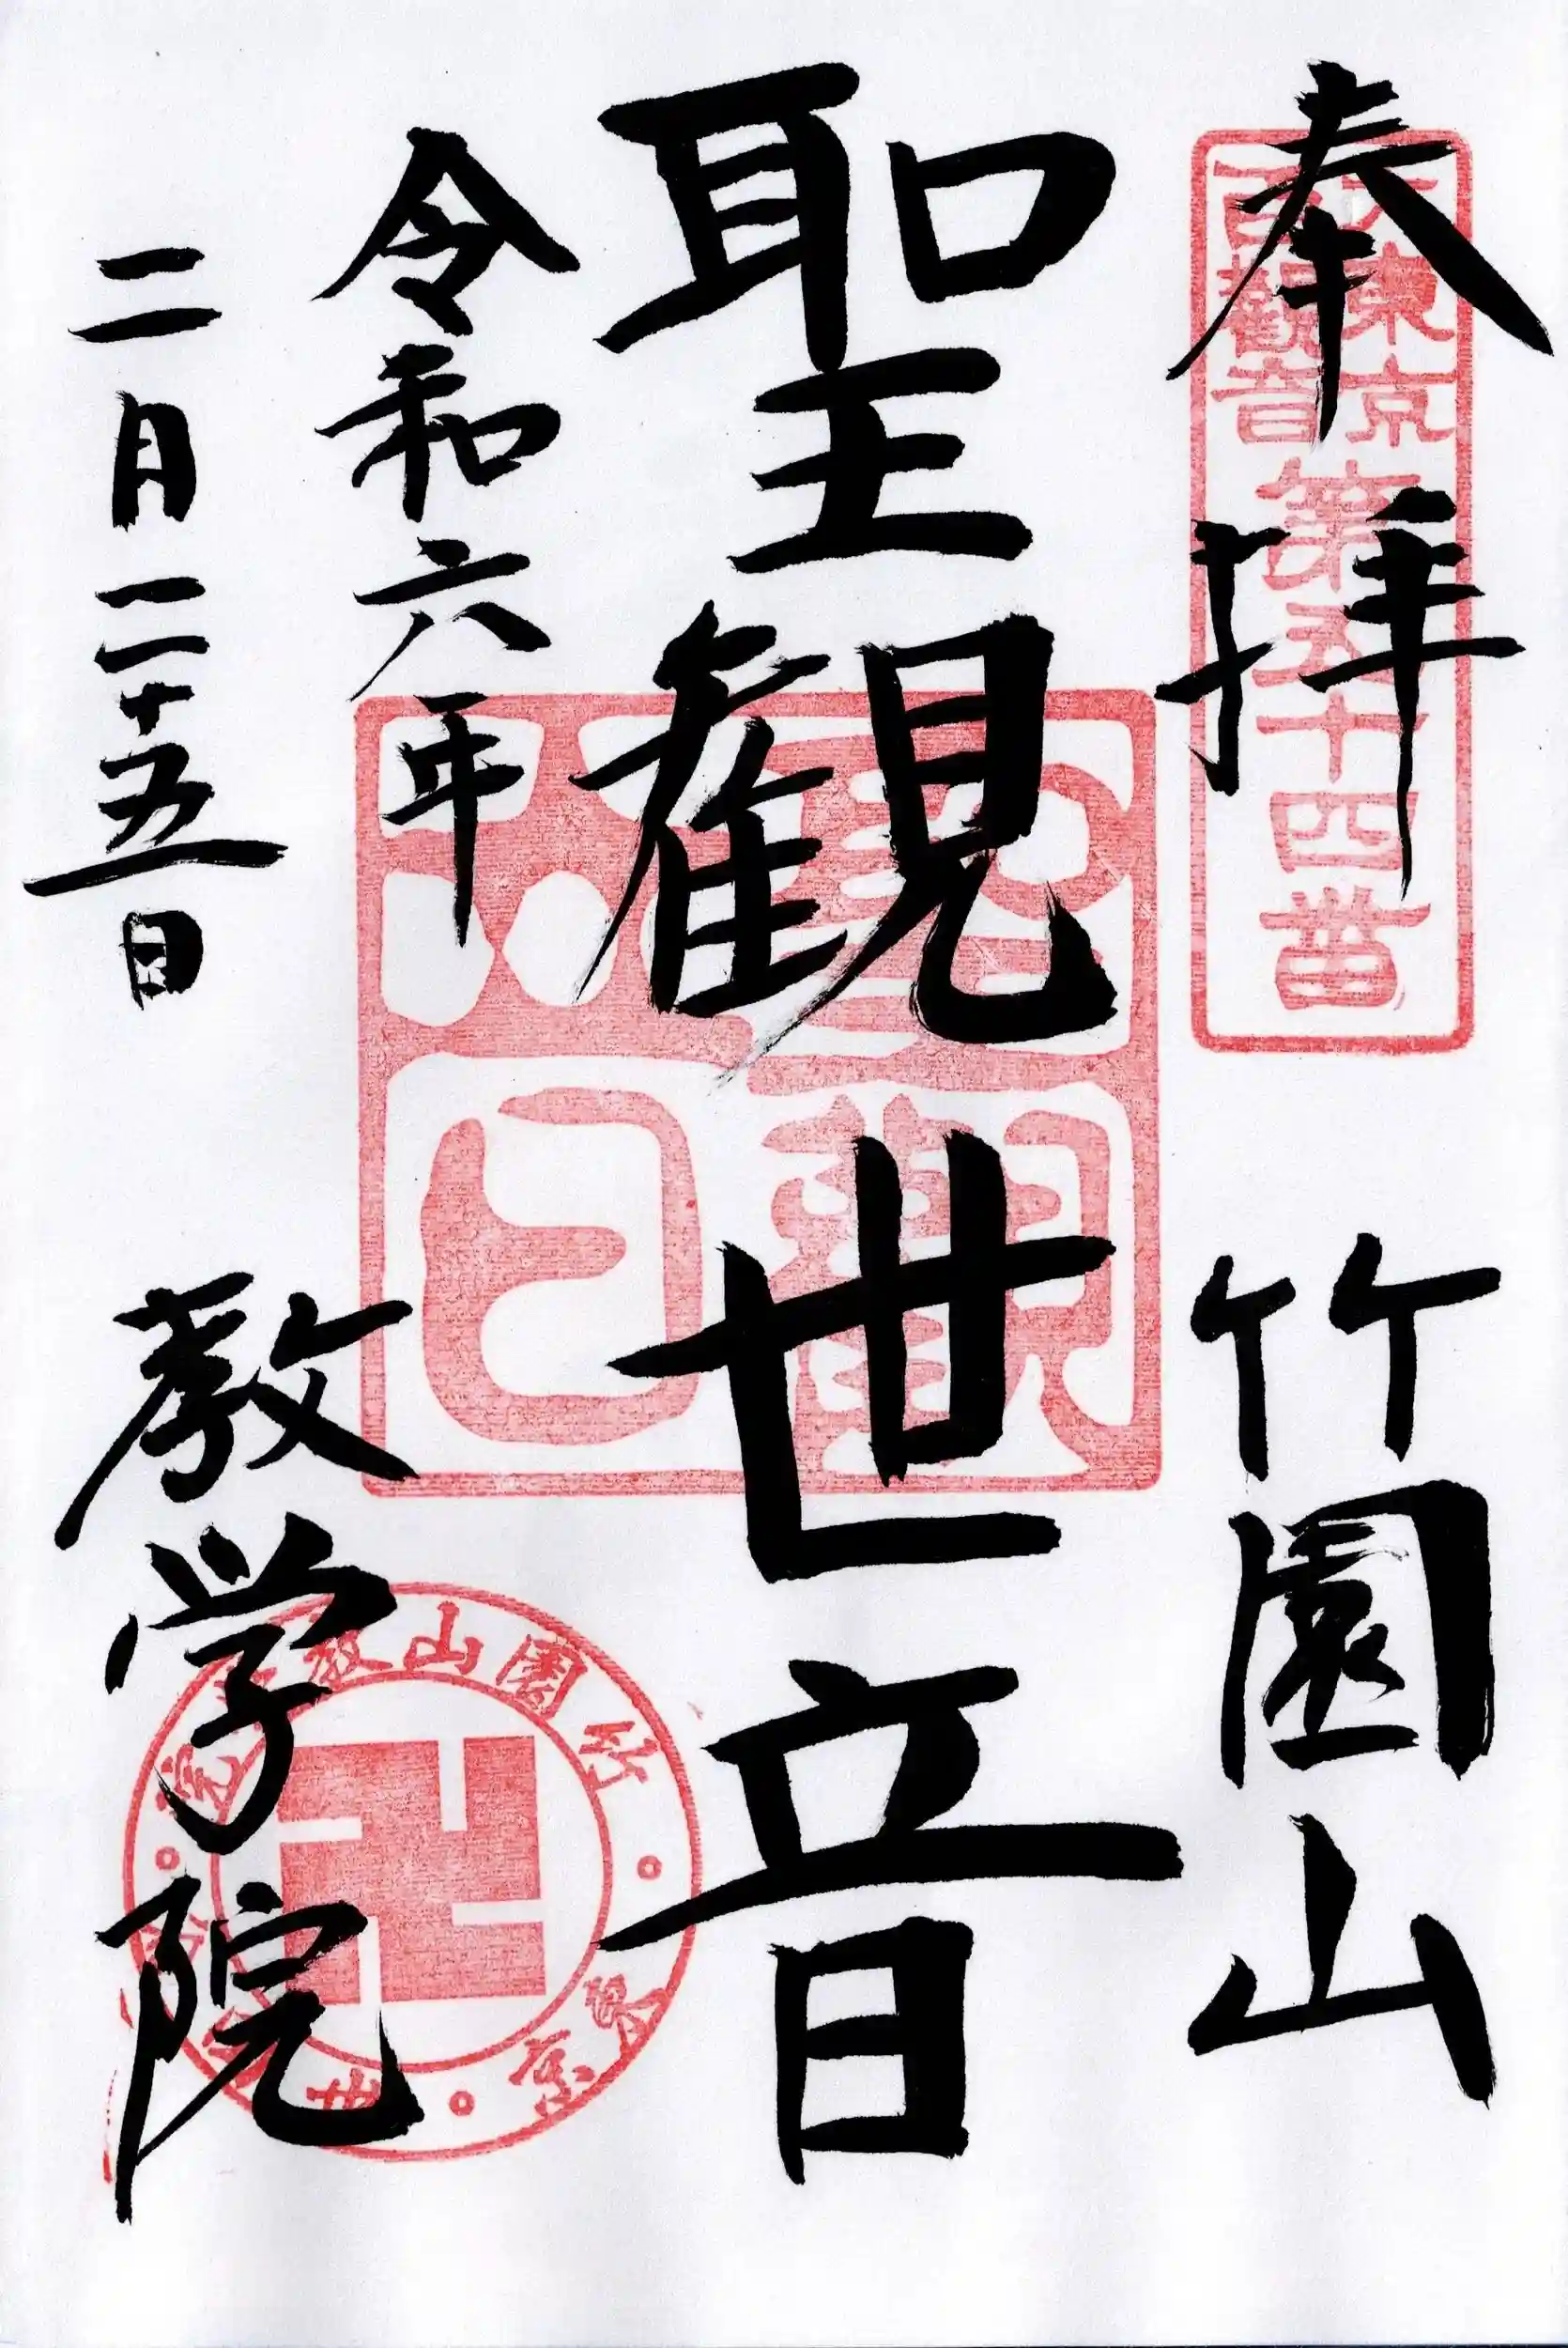 奉拝
竹園山
大東京
百観音
第五十四番
聖観世音
令和六年
二月二十五日
教学院
竹園山教学院
東京
世